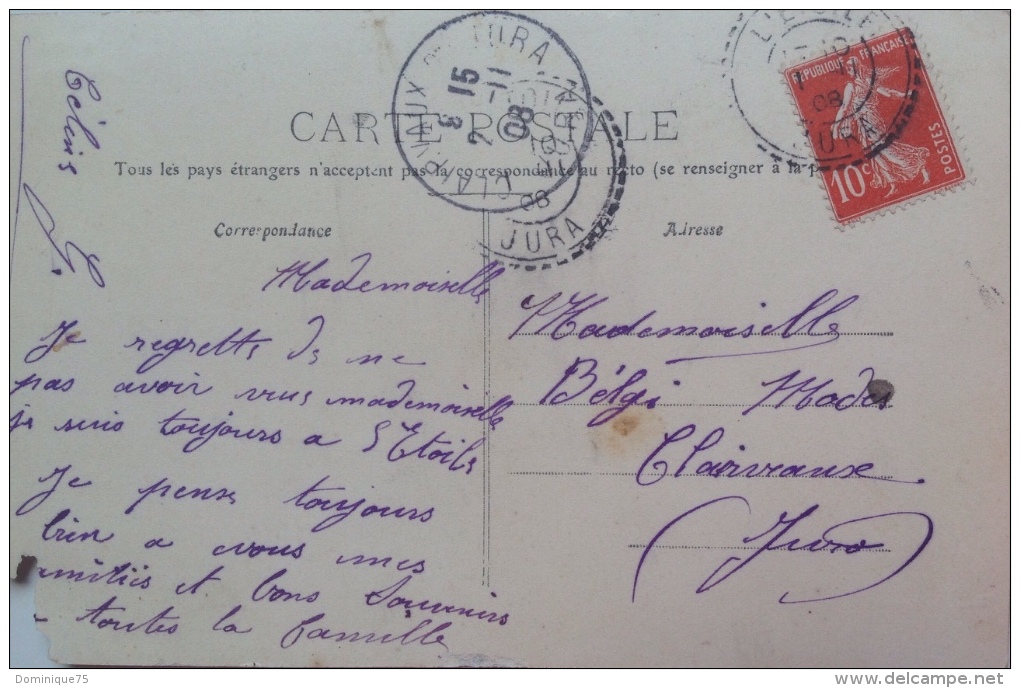 CARTE POSTALE
Tous les pays étrangers n'acceptent pas la correspondance au recto (se renseigner à la p
Correspondance
Mademoiselle
Je regrette de ne
pas avoir vus mademoiselle
je suis toujours a l'Etoile
Je pense toujours
bien a vous mes
amitiés et bons Souvenirs
a toutes la famille
Célnis
Adresse
Mademoiselle
Bélgi Modes
Clairvaux
(Jura)
REPUBLIQUE FRANÇAISE
10c POSTES
L'ETOILE
11
08
JURA
CLAIRVAUX JURA
8 15
2 11
08
08
JURA
Dominique75